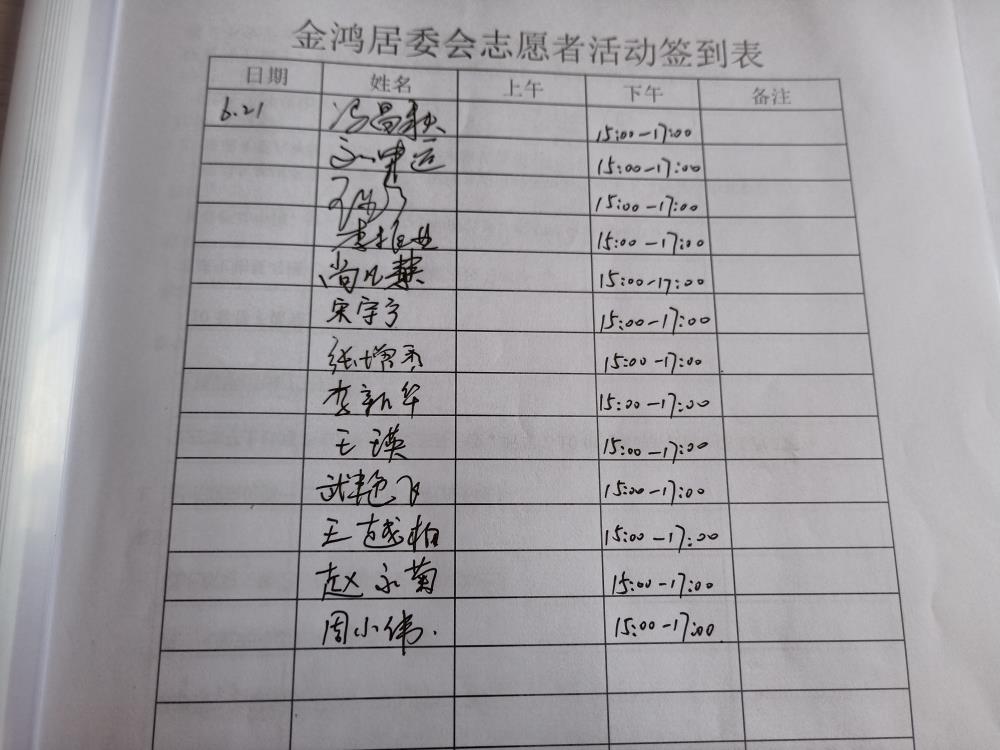 金鸿居委会志愿者活动签到表
日期 姓名 上午 下午 备注
6.21 冯昌秋 15:00-17:00
15:00-17:00
15:00-17:00
李振业 15:00-17:00
尚凡英 15:00-17:00
宋宇亨 15:00-17:00
张增秀 15:00-17:00
李新华 15:00-17:00
王瑛 15:00-17:00
武艳飞 15:00-17:00
王越柏 15:00-17:00
赵永菊 15:00-17:00
周小伟. 15:00-17:00